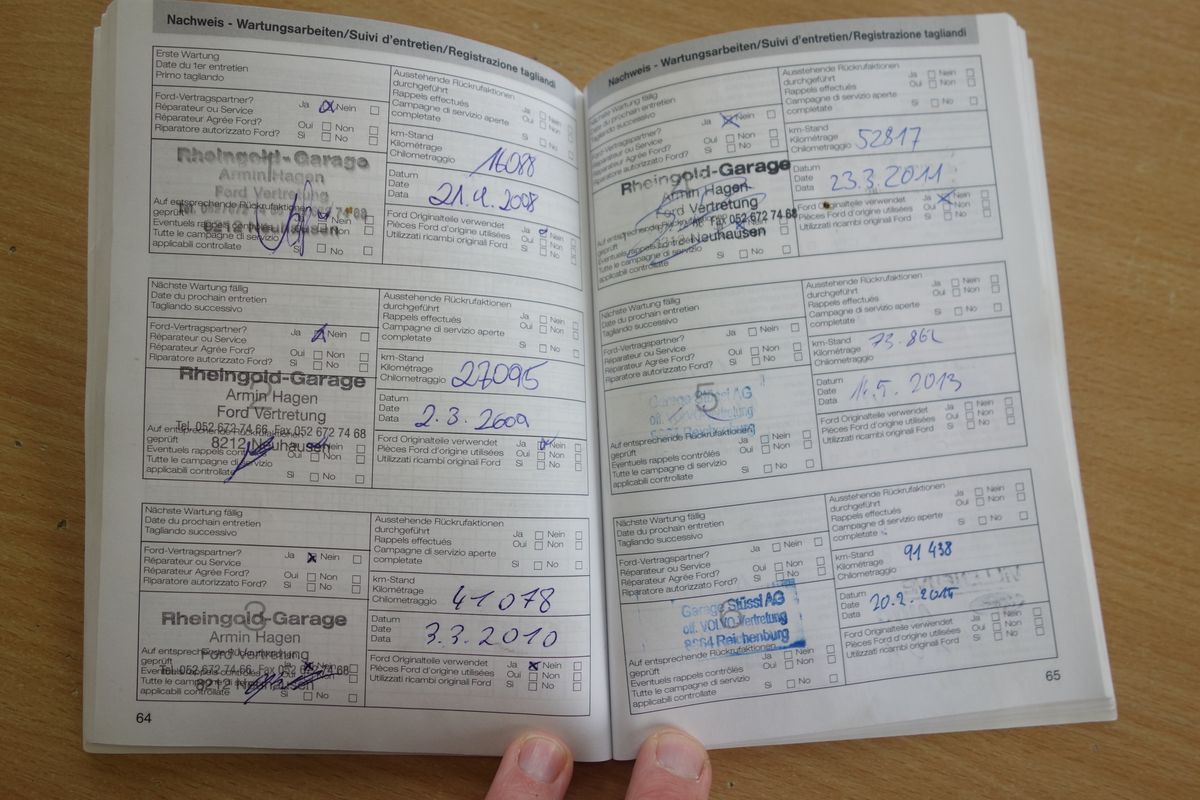 Nachweis - Wartungsarbeiten/Suivi d'entretien/Registrazione tagliandi
Erste Wartung
Date du 1er entretien
Primo tagliando
Ausstehende Rückrufaktionen
durchgeführt
Rappels effectués
Campagne di servizio aperte
completate
Ja Nein
Oui Non
Si No
Ford-Vertragspartner?
Réparateur ou Service
Réparateur Agrée Ford?
Riparatore autorizzato Ford?
Ja Nein
Oui Non
Si No
km-Stand
Kilométrage
Chilometraggio
16088
Rheingold-Garage
Armin Hagen
Ford Vertretung
8212 Neuhausen
Datum
Date
Data
Auf entsprechende Rückrufaktionen
geprüft
Eventuels rappels
Tutte le campagne di servizio
applicabili controllate
Si No
Ford Originalteile verwendet
Pièces Ford d'origine utilisées
Utilizzati ricambi original Ford
Ja Nein
Oui Non
Si No
Nächste Wartung fällig
Date du prochain entretien
Tagliando successivo
Ausstehende Rückrufaktionen
durchgeführt
Rappels effectués
Campagne di servizio aperte
completate
Ja Nein
Oui Non
Si No
Ford-Vertragspartner?
Réparateur ou Service
Réparateur Agrée Ford?
Riparatore autorizzato Ford?
Ja Nein
Oui Non
Si No
km-Stand
Kilométrage
Chilometraggio
27095
Rheingold-Garage
Armin Hagen
Ford Vertretung
Tel. 052 672 74 66, Fax 052 672 74 68
8212 Neuhausen
Datum
Date
Data
2.3.2009
Auf entsprechende Rückrufaktionen
geprüft
Eventuels rappels contrôlés
Tutte le campagne di servizio
applicabili controllate
Oui Non
Si No
Ford Originalteile verwendet
Pièces Ford d'origine utilisées
Utilizzati ricambi original Ford
Ja Nein
Oui Non
Si No
Nächste Wartung fällig
Date du prochain entretien
Tagliando successivo
Ausstehende Rückrufaktionen
durchgeführt
Rappels effectués
Campagne di servizio aperte
completate
Ja Nein
Oui Non
Si No
Ford-Vertragspartner?
Réparateur ou Service
Réparateur Agrée Ford?
Riparatore autorizzato Ford?
Ja Nein
Oui Non
Si No
km-Stand
Kilométrage
Chilometraggio
41078
3
Rheingold-Garage
Armin Hagen
Ford Vertretung
Tel. 052 672 74 66, Fax 052 672 74 68
8212 Neuhausen
Datum
Date
Data
3.3.2010
geprüft
Eventuels rappels contrôlés
applicabili controllate
Si No
Ford Originalteile verwendet
Pièces Ford d'origine utilisées
Utilizzati ricambi original Ford
Ja Nein
Oui Non
Si No
64
Nachweis - Wartungsarbeiten/Suivi d'entretien/Registrazione tagliandi
Nächste Wartung fällig
Date du prochain entretien
Tagliando successivo
Ausstehende Rückrufaktionen
durchgeführt
Rappels effectués
Campagne di servizio aperte
completate
Ja Nein
Oui Non
Si No
Ford-Vertragspartner?
Réparateur ou Service
Réparateur Agrée Ford?
Riparatore autorizzato Ford?
Ja Nein
Oui Non
Si No
km-Stand
Kilométrage
Chilometraggio
52817
Rheingold-Garage
Armin Hagen
Ford Vertretung
Fax 052 672 74 68
Neuhausen
Datum
Date
Data
23.3.2011
geprüft
Tutte le campagne di servizio
applicabili controllate
Si No
Ford Originalteile verwendet
Pièces Ford d'origine utilisées
Utilizzati ricambi original Ford
Ja Nein
Oui Non
Si No
Nächste Wartung fällig
Date du prochain entretien
Tagliando successivo
Ausstehende Rückrufaktionen
durchgeführt
Rappels effectués
Campagne di servizio aperte
completate
Ja Nein
Oui Non
Si No
Ford-Vertragspartner?
Réparateur ou Service
Réparateur Agrée Ford?
Riparatore autorizzato Ford?
Ja Nein
Oui Non
Si No
km-Stand
Kilométrage
Chilometraggio
5
Garage Stüssi AG
Datum
Date
Data
14.5.2013
Auf entsprechende Rückrufaktionen
geprüft
Eventuels rappels contrôlés
Tutte le campagne di servizio
applicabili controllate
Ja Nein
Oui Non
Si No
Ford Originalteile verwendet
Pièces Ford d'origine utilisées
Utilizzati ricambi original Ford
Ja Nein
Oui Non
Si No
Nächste Wartung fällig
Date du prochain entretien
Tagliando successivo
Ausstehende Rückrufaktionen
durchgeführt
Rappels effectués
Campagne di servizio aperte
completate
Ja Nein
Oui Non
Si No
Ford-Vertragspartner?
Réparateur ou Service
Réparateur Agrée Ford?
Riparatore autorizzato Ford?
Ja Nein
Oui Non
Si No
km-Stand
Kilométrage
Chilometraggio
91438
6
Garage Stüssi AG
off. VOLVO-Vertretung
8864 Reichenburg
Datum
Date
Data
Auf entsprechende Rückrufaktionen
geprüft
Eventuels rappels contrôlés
Tutte le campagne di servizio
applicabili controllate
Ja Nein
Oui Non
Si No
Ford Originalteile verwendet
Pièces Ford d'origine utilisées
Utilizzati ricambi original Ford
Ja Nein
Oui Non
Si No
65